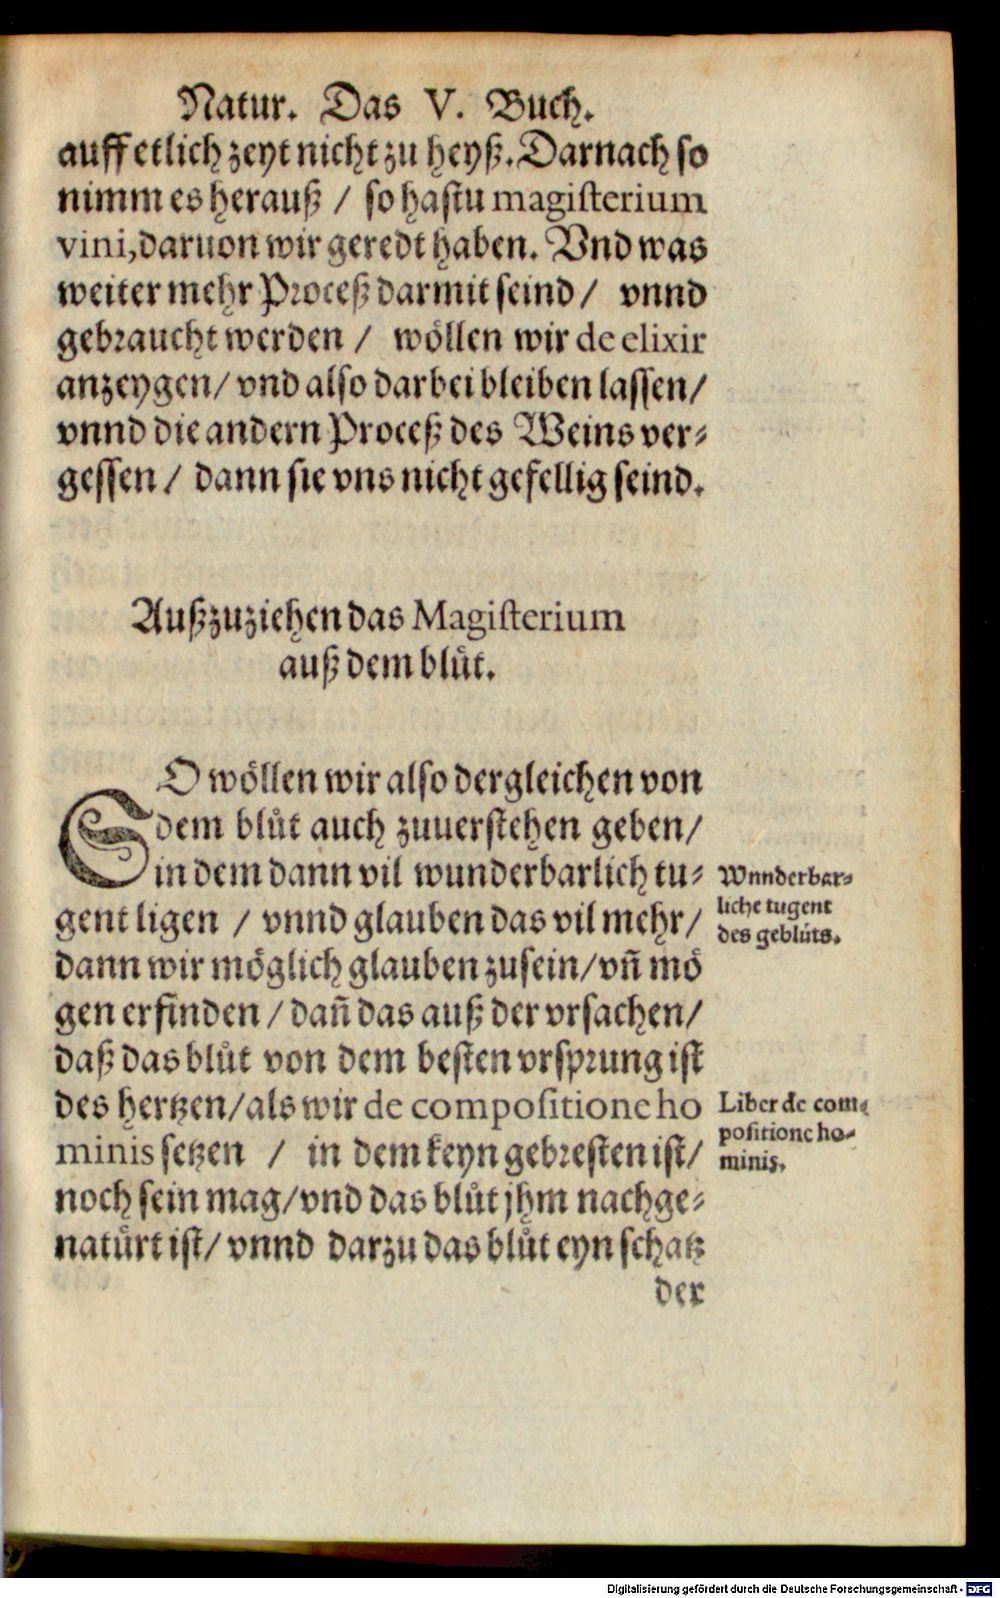 Natur. Das V. Buch.
auff etlich zeyt nicht zu heyß. Darnach so
nimm es herauß / so hastu magisterium
vini, daruon wir geredt haben. Vnd was
weiter mehr Proceß darmit seind / vnnd
gebraucht werden / wöllen wir de elixir
anzeygen / vnd also darbei bleiben lassen /
vnnd die andern Proceß des Weins ver⸗
gessen / dann sie vns nicht gefellig seind.
Außzuziehen das Magisterium
auß dem blůt.
SO wöllen wir also dergleichen von
dem blůt auch zuuerstehen geben /
in dem dann vil wunderbarlich tu⸗
gent ligen / vnnd glauben das vil mehr /
dann wir möglich glauben zusein / vñ mö
gen erfinden / dañ das auß der vrsachen /
daß das blůt von dem besten vrsprung ist
des hertzen / als wir de compositione ho
minis setzen / in dem keyn gebresten ist /
noch sein mag / vnd das blůt jhm nachge⸗
natůrt ist / vnnd darzu das blůt eyn schatz
der
Wunderbar⸗
liche tugent
des geblůts.
Liber de com⸗
positione ho⸗
minis.
Digitalisierung gefördert durch die Deutsche Forschungsgemeinschaft - DFG